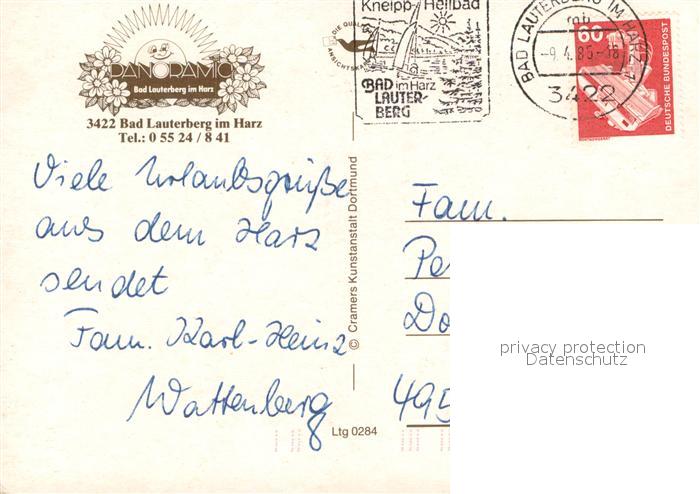 PANORAMIC
Bad Lauterberg im Harz
3422 Bad Lauterberg im Harz
Tel.: 0 55 24 / 8 41
Viele Urlaubsgrüße
aus dem Harz
sendet
Fam. Karl-Heinz
Wattenberg
DIE QUALITÄTS
ANSICHTSKARTE
© Cramers Kunstanstalt Dortmund
Ltg 0284
Kneipp-Heilbad
BAD im Harz
LAUTER-
BERG
BAD LAUTERBERG IM HARZ 1
mb
-9.4.86-18
3422
60
DEUTSCHE BUNDESPOST
Fam.
Pe
Do
495
privacy protection
Datenschutz